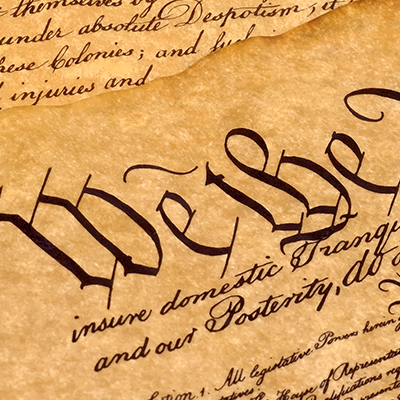 themselves by
under absolute Despotism; it
these Colonies; and
injuries and
We the
insure domestic Tranqu
and our Posterity, do
ction. 1. All legislative Powers herein
House of Representat